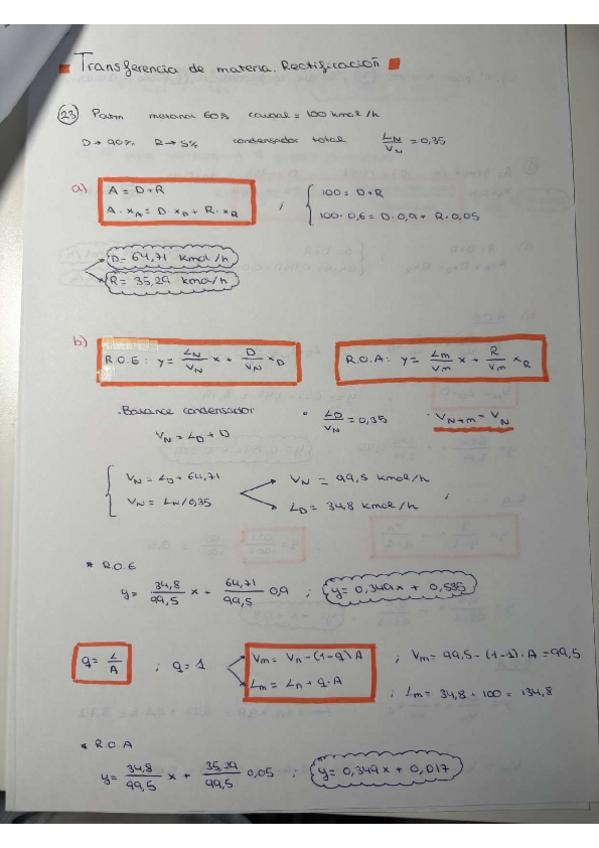 Transferencia de materia. Rectificación
23 Patm metanol 60% caudal = 100 kmol/h
D → 90% R → 5% condensador total LN/VN = 0,35
a) A = D+R ; 100 = D+R
A·xA = D·xD + R·xR 100·0,6 = D·0,9 + R·0,05
D= 64,71 kmol/h
R= 35,29 kmol/h
b) R.O.E: y= LN/VN x + D/VN xD R.O.A: y= Lm/Vm x + R/Vm xR
·Balance condensador · LD/VN = 0,35 · VN+m = VN
VN = LD + D
VN = LD + 64,71 VN = 99,5 kmol/h
VN = LN/0,35 LD = 34,8 kmol/h ;
* R.O.E
y= 34,8/99,5 x - 64,71/99,5 0,9 ; y= 0,349x + 0,535
q= L/A ; q= 1 Vm = Vn-(1-q)A ; Vm = 99,5-(1-1)·A = 99,5
Lm = Ln + q·A ; Lm = 34,8 + 100 = 134,8
* R.O.A
y= 34,8/99,5 x + 35,29/99,5 0,05 ; y= 0,349x + 0,017